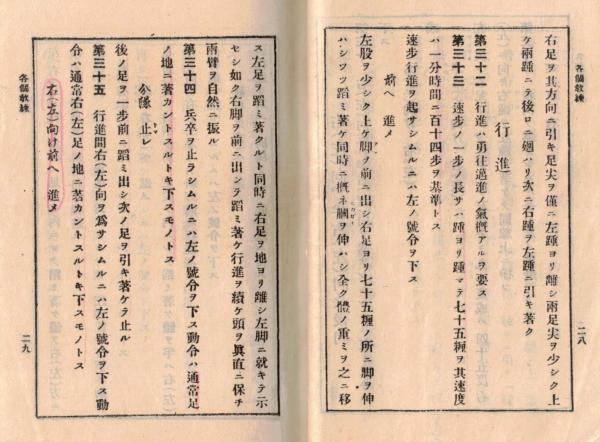 各個教練
右足ヲ其方向ニ引キ足尖ヲ僅ニ左踵ヨリ離シ兩足尖ヲ少シク上
ケ兩踵ニテ後ロニ廻ハリ次ニ右踵ヲ左踵ニ引キ著ク
行進
第三十二 行進ハ勇往邁進ノ氣概アルヲ要ス
第三十三 速步ノ一步ノ長サハ踵ヨリ踵マテ七十五糎ヲ其速度
ハ一分時間ニ百十四步ヲ基準トス
速步行進ヲ起サシムルニハ左ノ號令ヲ下ス
前ヘ 進メ
左股ヲ少シク上ケ脚ヲ前ニ出シ右足ヨリ七十五糎ノ所ニ脚ヲ伸
ハシツツ蹈ミ著ケ同時ニ概ネ膕ヲ伸ハシ全ク體ノ重ミヲ之ニ移
二八
ス左足ヲ蹈ミ著クルト同時ニ右足ヲ地ヨリ離シ左脚ニ就キテ示
セシ如ク右脚ヲ前ニ出シテ蹈ミ著ケ行進ヲ續ケ頭ヲ眞直ニ保チ
兩臂ヲ自然ニ振ル
第三十四 兵卒ヲ止ラシムルニハ左ノ號令ヲ下ス動令ハ通常足
ノ地ニ著カントスルトキ下スモノトス
分隊 止レ
後ノ足ヲ一步前ニ蹈ミ出シ次ノ足ヲ引キ著ケテ止ル
第三十五 行進間右(左)向ヲ爲サシムルニハ左ノ號令ヲ下ス動
令ハ通常右(左)足ノ地ニ著カントスルトキ下スモノトス
右(左)向け前ヘ 進メ
各個教練
二九